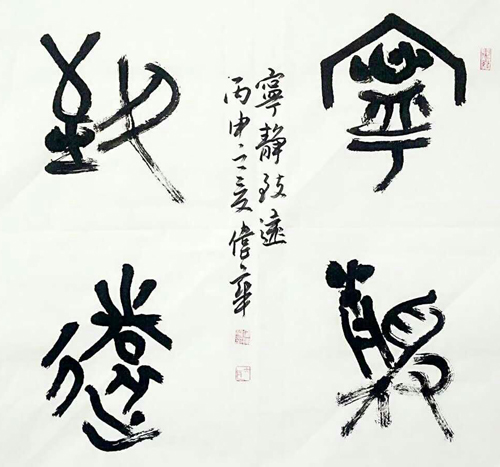 寧靜
致遠
寧靜致遠
丙申之夏偉華